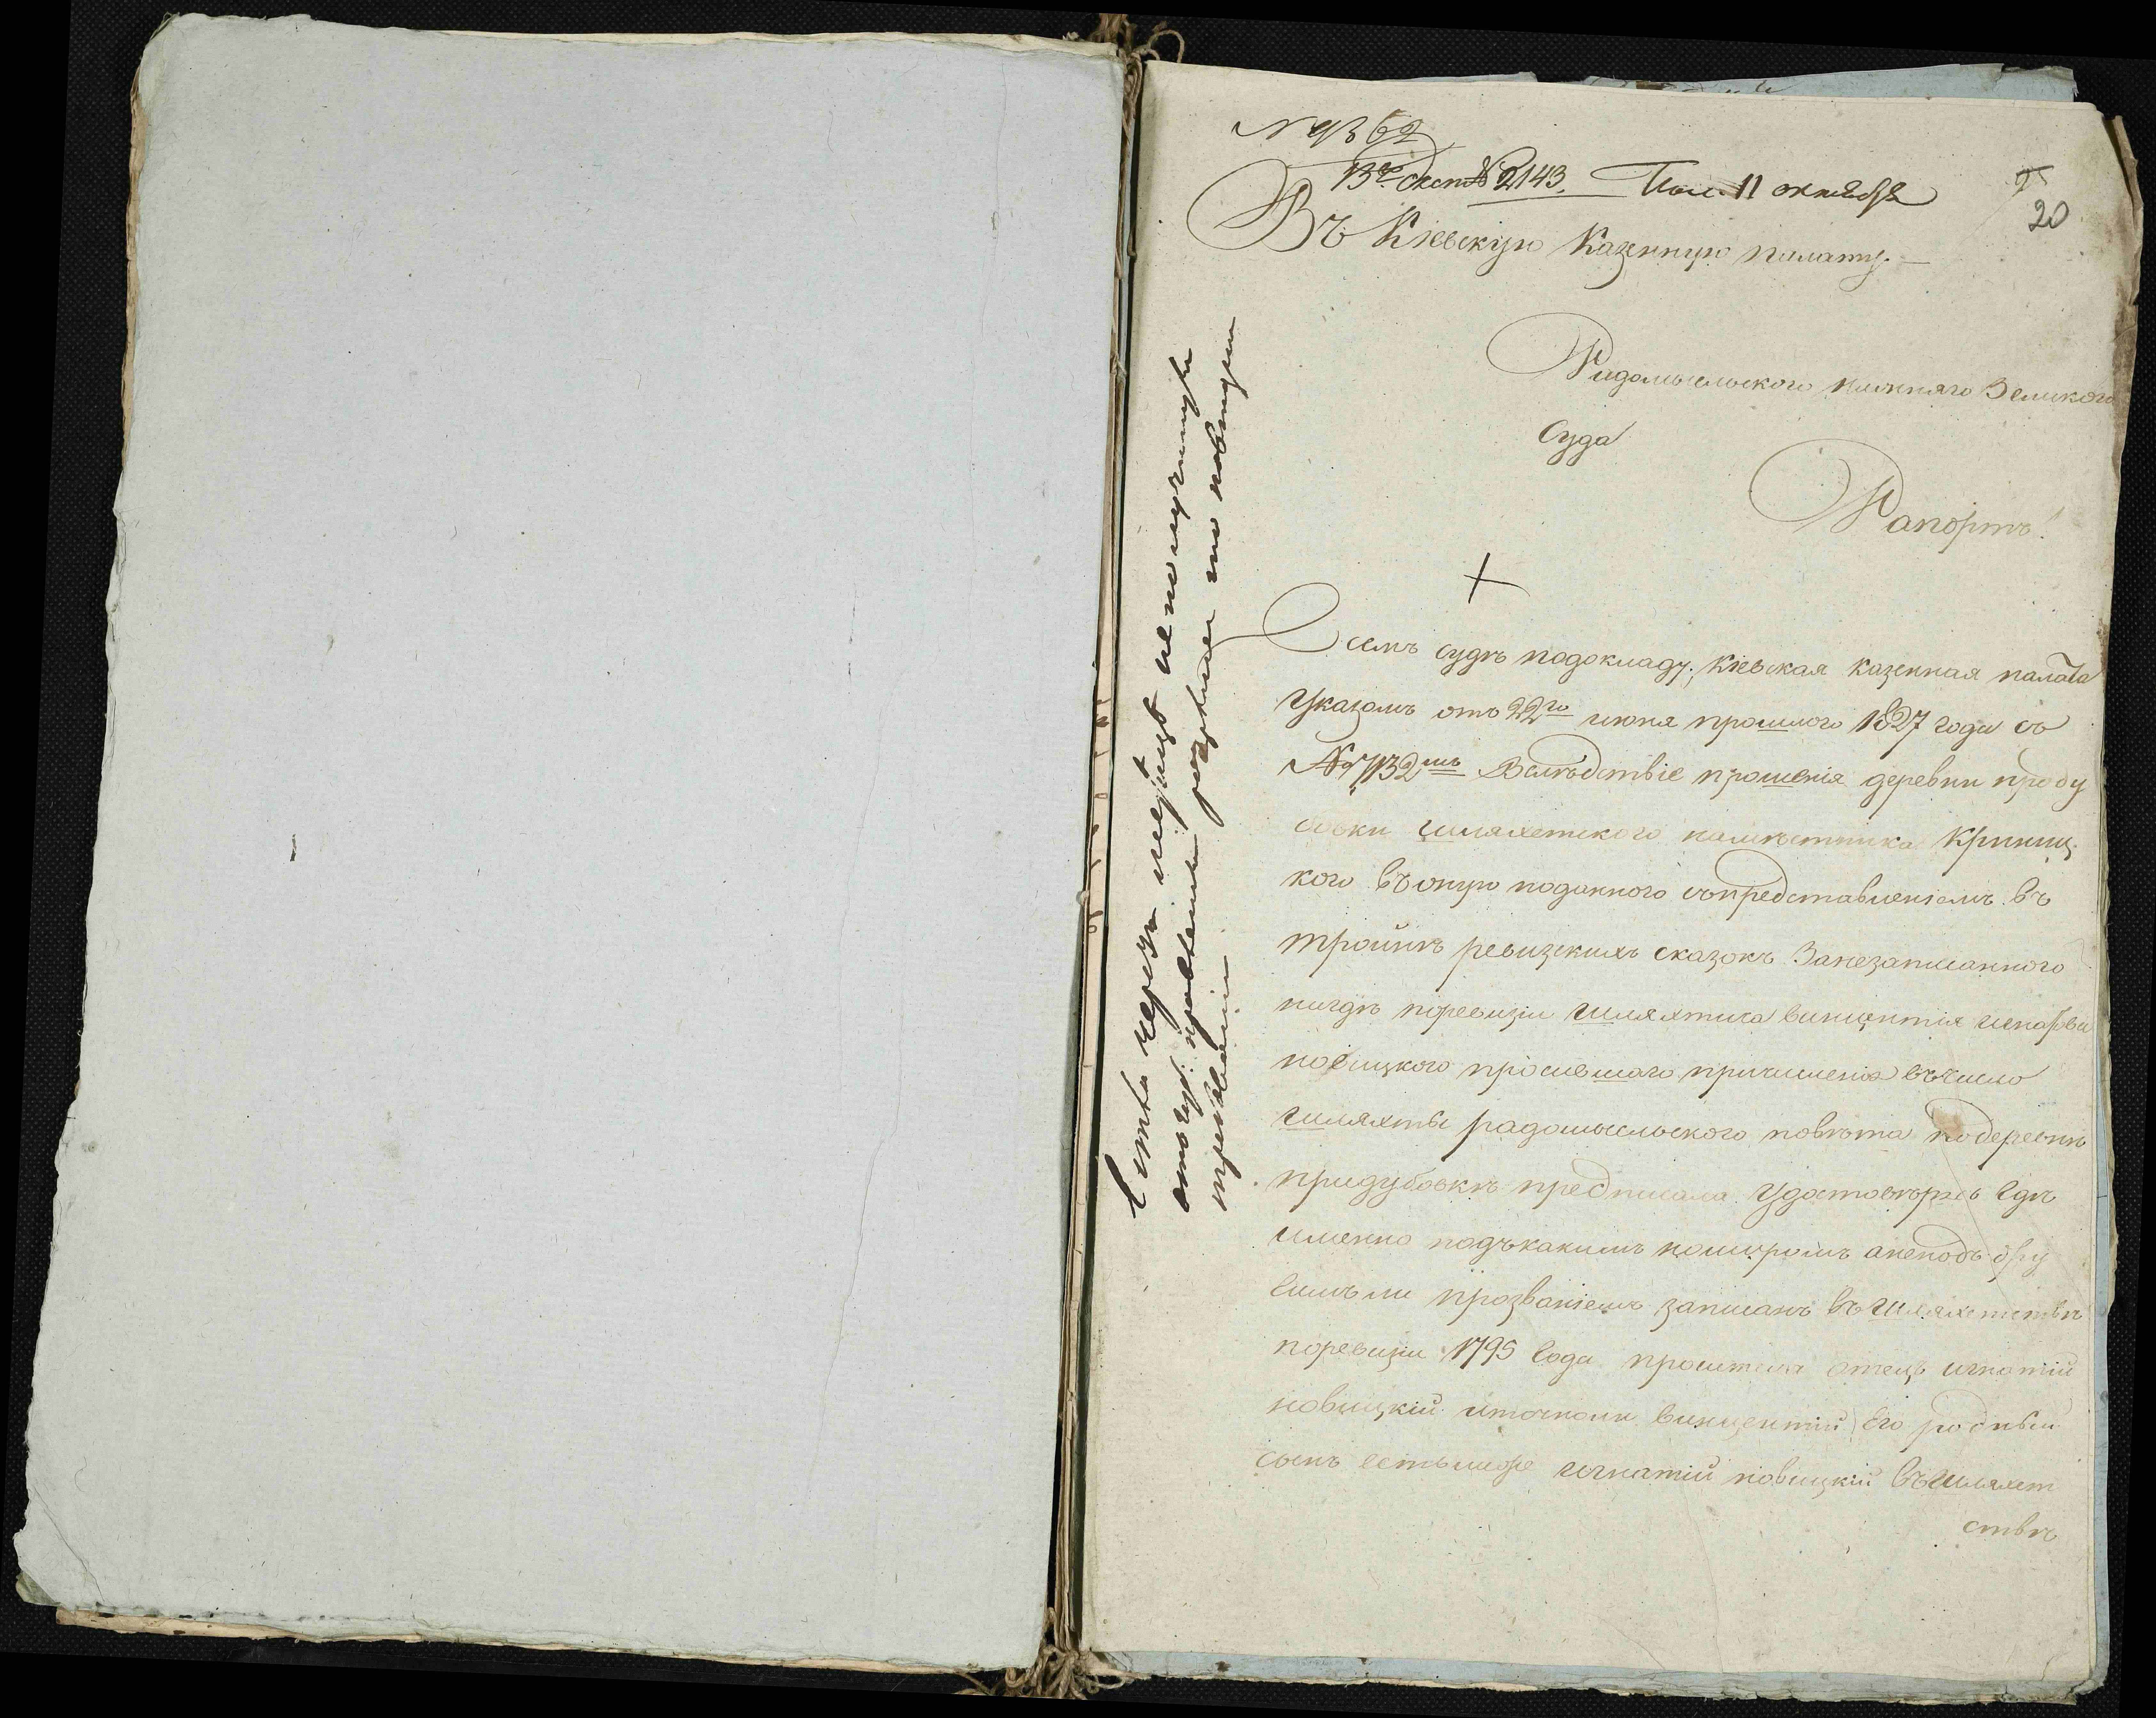 № 9362
В Экспе № 2143. Пол. 11 октября
20
Въ Кіевскую Казенную палату.—
Радомысльского нижняго Земского
Суда
Рапортъ!
Всемъ судѣ подокладу: Кіевская казенная палата
Указомъ отъ 22го июня прошлого 1827 года съ
№ 7132мъ Вслѣдствіе прошенія деревни приду
бовки шляхетского намѣстника Криниц
кого въоную поданного сопредставленіемъ въ
тройнѣ ревизскихъ сказокъ Занезаписанного
нигдѣ поревизіи шляхтича винцентія
новицкого просившаго причисленія въчисло
шляхты радомысльского повѣта по деревнѣ
придубовкѣ предписала Удостовѣрясь Гдѣ
именно подъкакимъ номеромъ анеподъ дру
гимъли прозваніемъ записанъ въ шляхетствѣ
поревизіи 1795 Года просителя отецъ игнатій
новицкій иточноли винцентій Его родный
сынъ естьлиже игнатій новицкій въшляхет
ствѣ
Естли черезъ не получится
отъ губ: правленія то повторить
требованіи